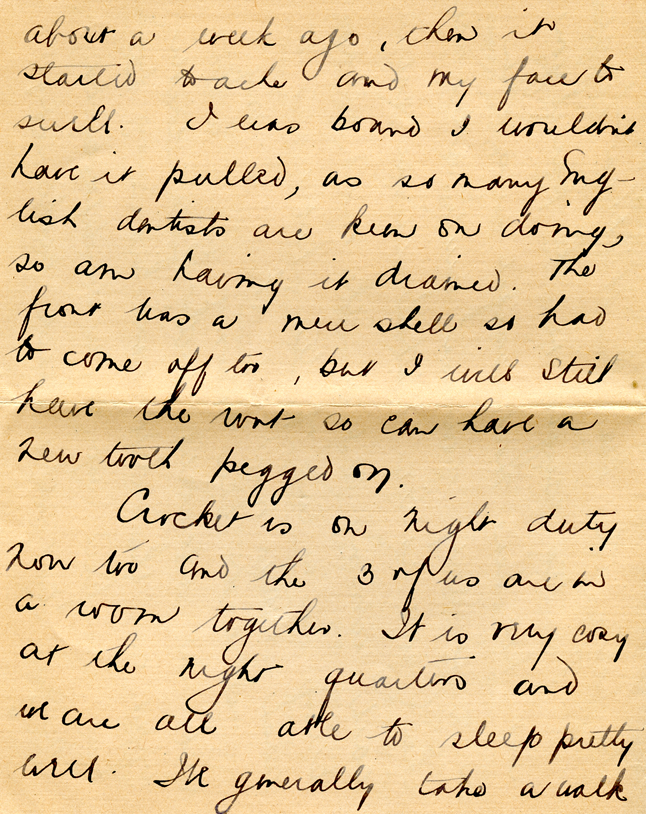 about a week ago, then it
started to ache and my face to
swell. I was bound I wouldn't
have it pulled, as so many Eng-
lish dentists are keen on doing,
so am having it drained. The
front was a mere shell so had
to come off too, but I will still
have the root so can have a
new tooth pegged on.
Crocket is on night duty
now too and the 3 of us are in
a room together. It is very cosy
at the night quarters and
we are all able to sleep pretty
well. We generally take a walk